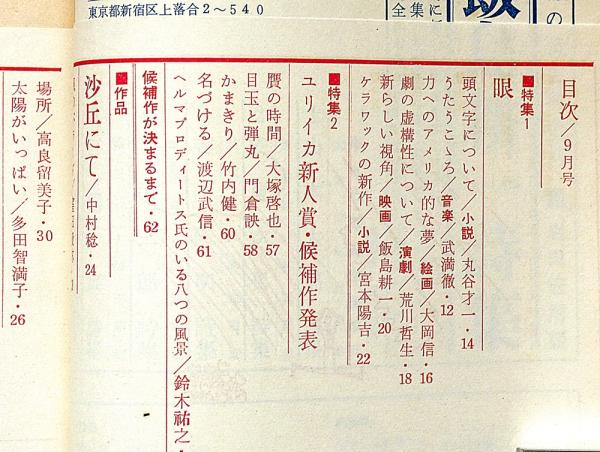 東京都新宿区上落合2～540
全集に
の
目次／9月号
■特集1
眼
頭文字について／小説／丸谷才一・14
うたうこゝろ／音楽／武満徹・12
力へのアメリカ的な夢／絵画／大岡信・16
劇の虚構性について／演劇／荒川哲生・18
新らしい視角／映画／飯島耕一・20
ケラワックの新作／小説／宮本陽吉・22
■特集2
ユリイカ新人賞・候補作発表
贋の時間／大塚啓也・57
目玉と弾丸／門倉訣・58
かまきり／竹内健・60
名づける／渡辺武信・61
ヘルマプロディートス氏のいる八つの風景／鈴木祐之・
候補作が決まるまで・62
■作品
沙丘にて／中村稔・24
場所／高良留美子・30
太陽がいっぱい／多田智満子・26